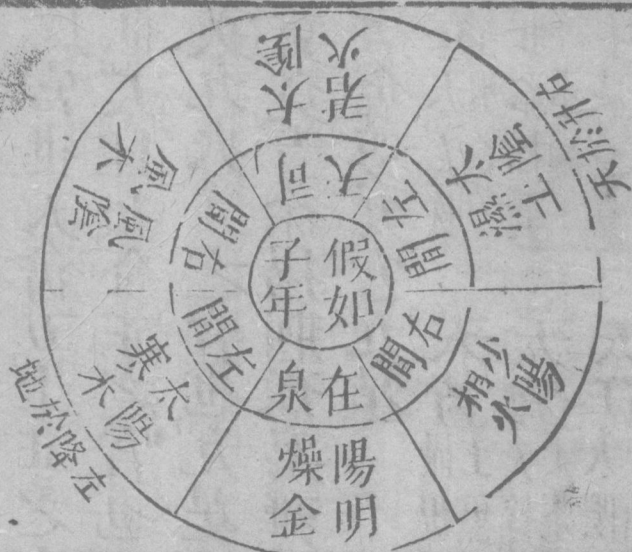 假如
子年
司天
左間
右間
在泉
左間
右間
少陰
君火
太陰
濕土
少陽
相火
陽明
燥金
太陽
寒水
風木
右升於天
左降於地